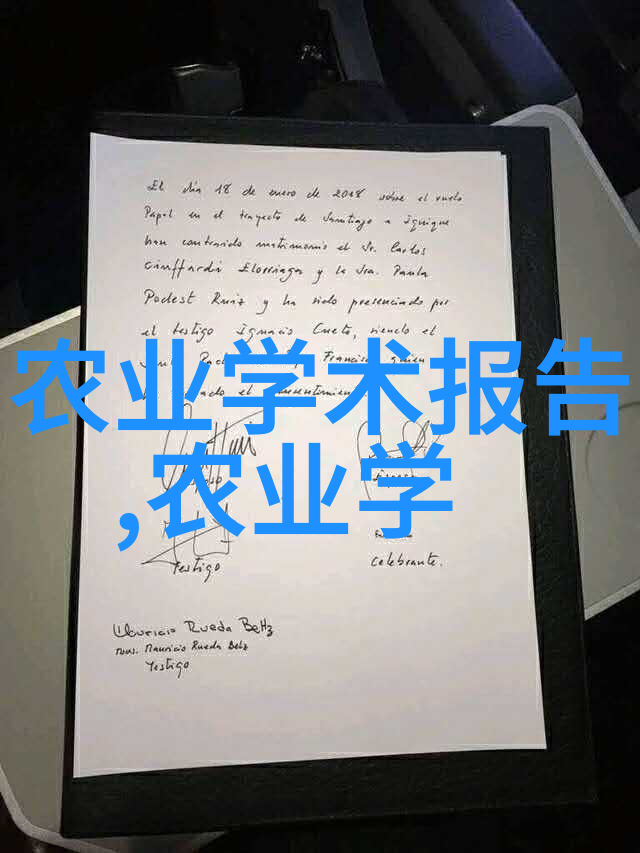 El día 18 de enero de 2018 sobre el vuelo
Papal en el trayecto de Santiago a Iquique
han contraido matrimonio el Sr. Carlos
Ciuffardi Elorriaga y la Sra. Paula
Podest Ruiz y ha sido presenciado por
el testigo Ignacio Cueto, siendo el
Francisco quien
农业学术报告
el consentimiento
,农业学
Testigo
Celebrante.
Mauricio Rueda Beltz
Mons. Mauricio Rueda Beltz
Testigo